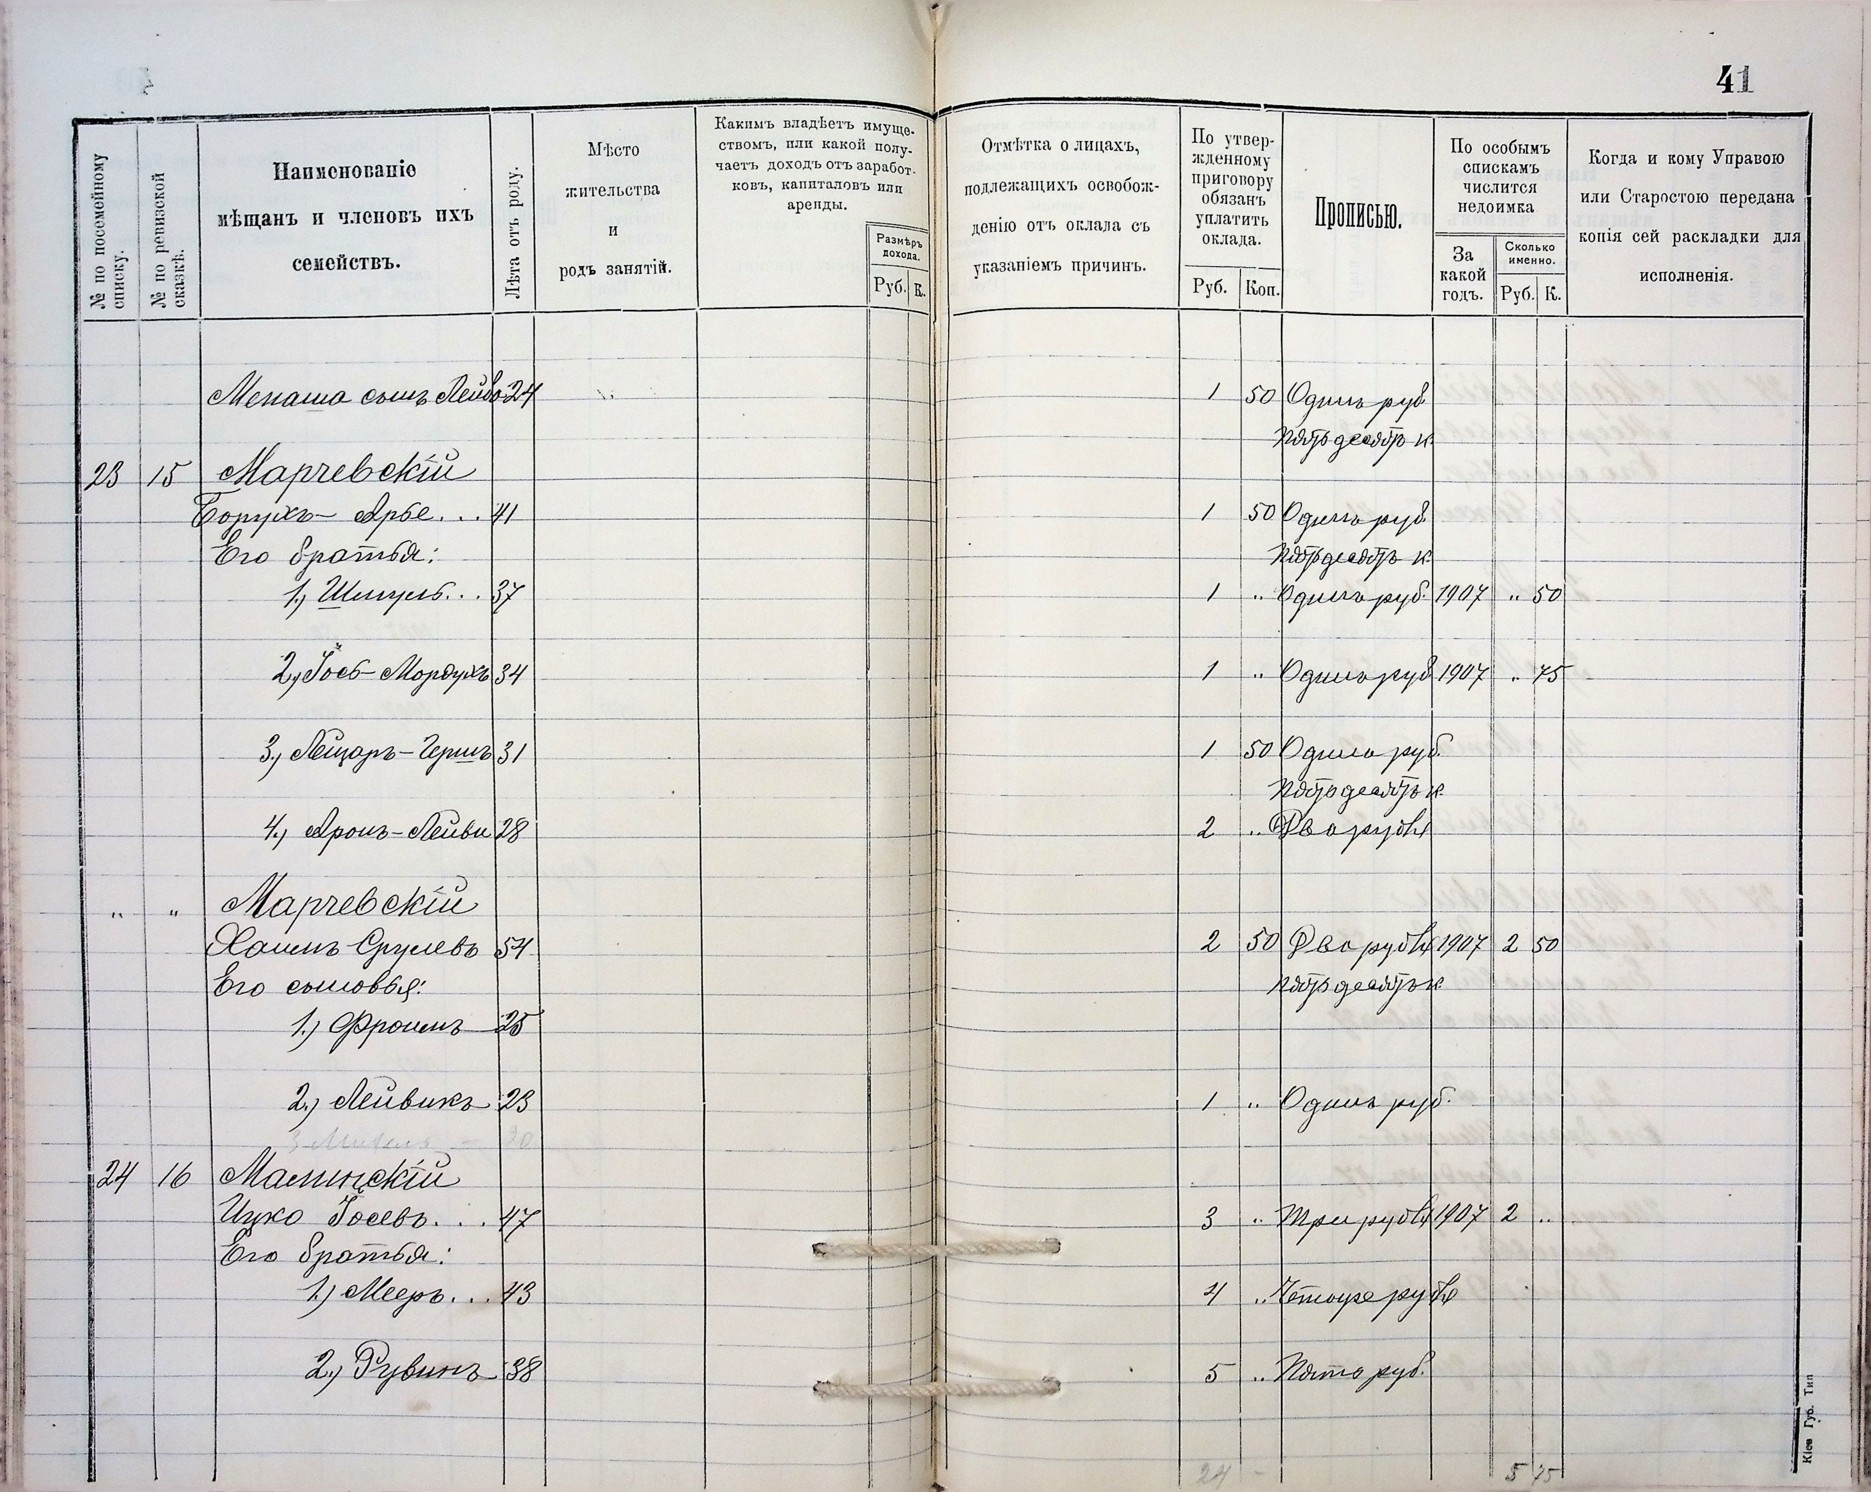 41
№ по посемейному списку.
№ по ревизской сказкѣ.
Наименованіе
мѣщанъ и членовъ ихъ
семействъ.
Лѣта отъ роду.
Мѣсто
жительства
и
родъ занятій.
Какимъ владѣетъ имуще-
ствомъ, или какой полу-
чаетъ доходъ отъ заработ-
ковъ, капиталовъ или
аренды.
Размѣръ
дохода.
Руб. К.
Отмѣтка о лицахъ,
подлежащихъ освобож-
денію отъ оклада съ
указаніемъ причинъ.
По утвер-
жденному
приговору
обязанъ
уплатить
оклада.
Руб. Коп.
Прописью.
По особымъ
спискамъ
числится
недоимка
За
какой
годъ.
Сколько
именно.
Руб. К.
Когда и кому Управою
или Старостою передана
копія сей раскладки для
исполненія.
Менаша сынъ Лейбо 24 1 50 Одинъ руб
пятьдесятъ к.
23 15 Марчевскій
Борухъ-Арье... 41 1 50 Одинъ руб.
пятьдесятъ к.
Его братья:
1.) Шмуль... 37 1 " Одинъ руб. 1907 " 50
2.) Іось-Мордухъ 34 1 " Одинъ руб 1907 " 75
3.) Лейзоръ-Гершъ 31 1 50 Одинъ руб.
пятьдесятъ к.
4.) Аронъ-Лейви 28 2 " Два рубля
" " Марчевскій
Хаимъ Срулевъ 54 2 50 Два рубля 1907 2 50
Его сыновья: пятьдесятъ к
1.) Фроимъ 25
2.) Лейвикъ 23 1 " Одинъ руб.
20
24 16 Малинскій
Ицко Іосевъ... 47 3 " Три рубля 1907 2 "
Его братья:
1.) Мееръ... 43 4 " Четыре рубля
2.) Рувинъ 38 5 " Пять руб.
24 - 5 75
Кіев Губ. Тип